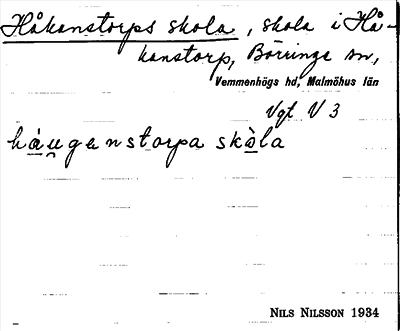 Håkanstorps skola, skola i Hå-
kanstorp, Börringe sn,
Vemmenhögs hd, Malmöhus län
Vgt V 3
håu̯genstorpa skåla
NILS NILSSON 1934